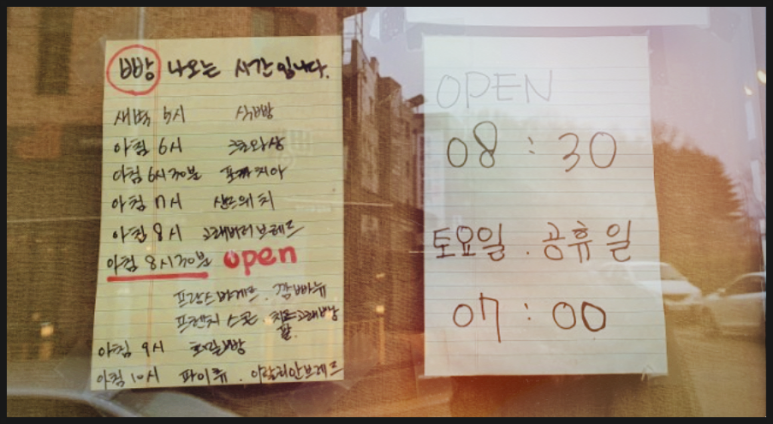 빵 나오는 시간입니다.
새벽 5시 식빵
아침 6시 크로와상
아침 6시 30분 포카치아
아침 7시 샌드위치
아침 8시 고래버터브레드
아침 8시 30분 open
프랑스바게트. 깜빠뉴
프렌치 스콘.
아침 9시 호밀빵
아침 10시 파이류. 이탈리안브레드
OPEN
08 : 30
토요일. 공휴일
07 : 00